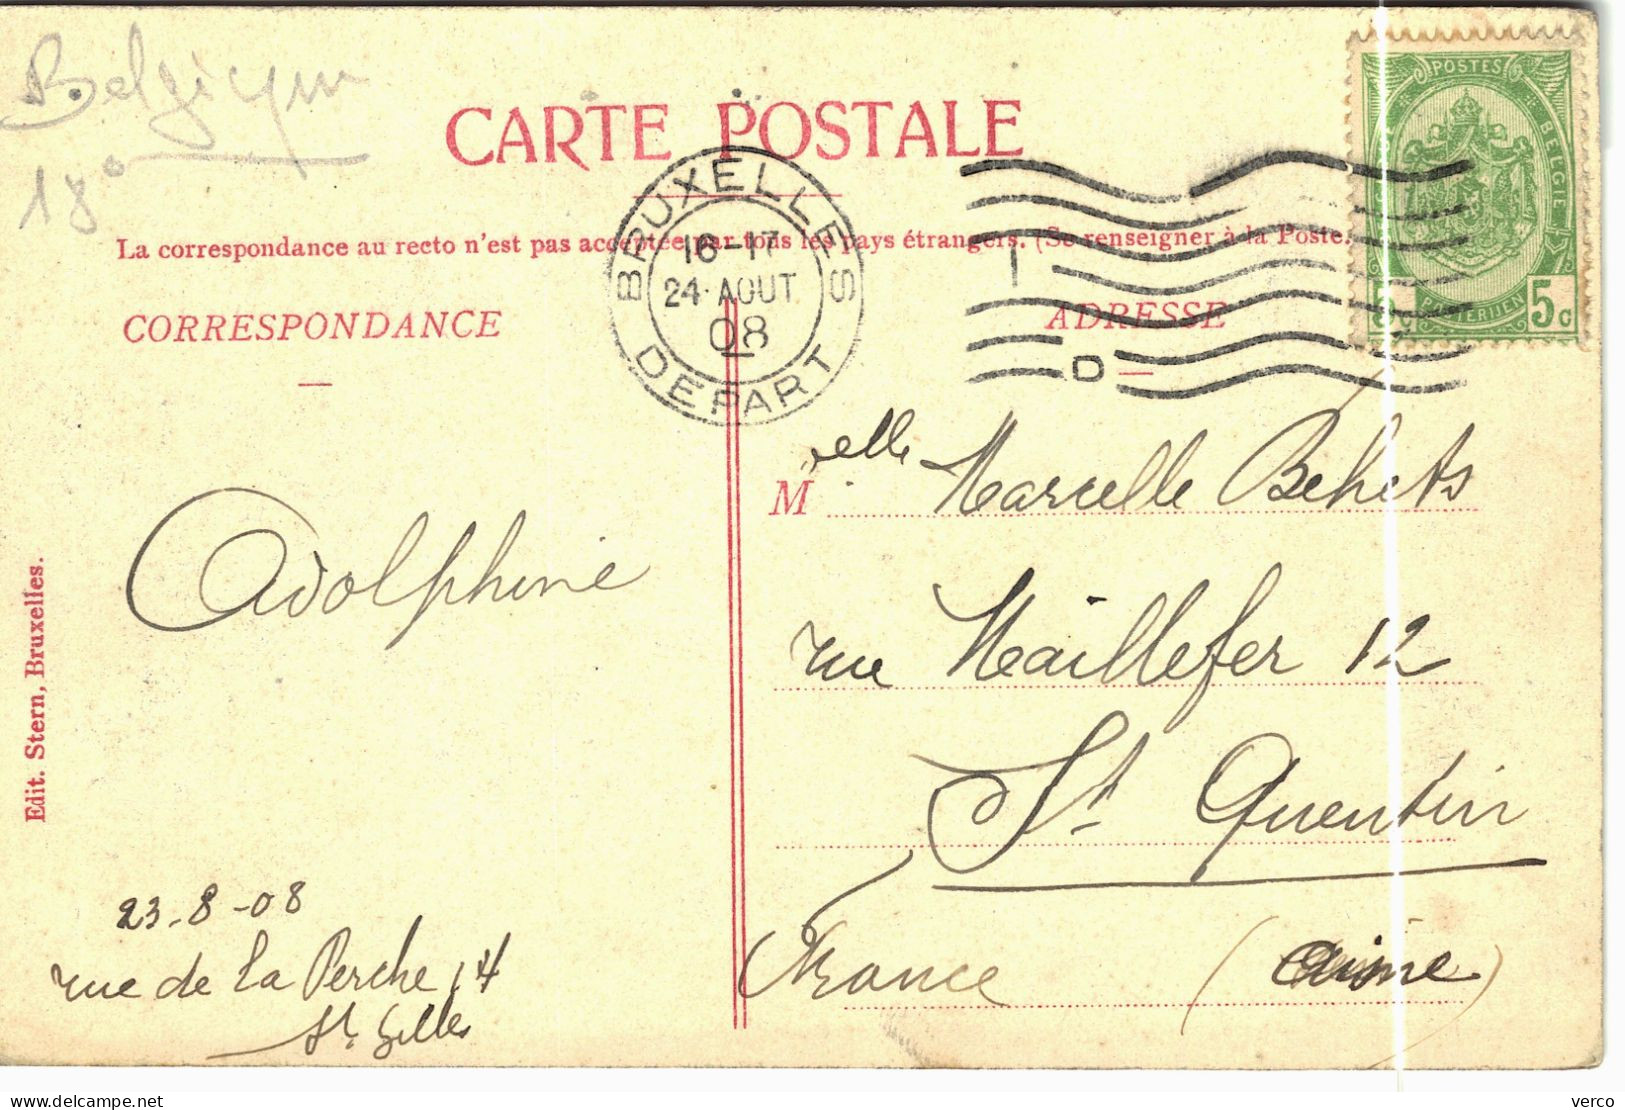 Belgique
18°
CARTE POSTALE
La correspondance au recto n'est pas acceptée par tous les pays étrangers. (Se renseigner à la Poste.
BRUXELLES
16-17
24·AOUT
08
DEPART
D
POSTES
BELGIE
5c
5c
CORRESPONDANCE
ADRESSE
Adolphine
23-8-08
rue de la Perche 14
St. Gilles
Edit. Stern, Bruxelles.
Melle Marcelle Behets
rue Maillefer 12
St Quentin
France (Aisne)
verco